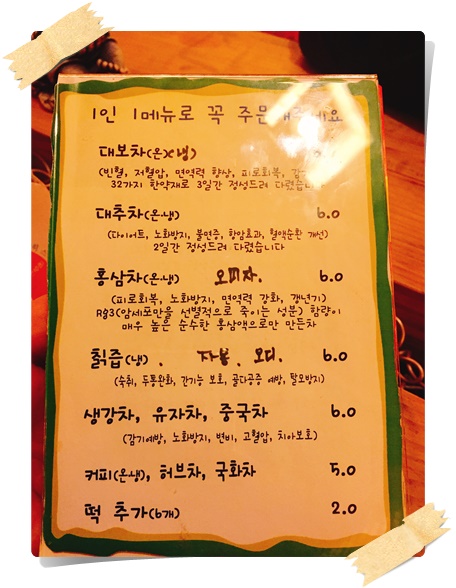 1인 1메뉴로 꼭 주문해주세요
대보차(온x냉)
(빈혈, 저혈압, 면역력 향상, 피로회복,
32가지 한약재로 3일간 정성드려 다렸습니다
대추차(온.냉) 6.0
(다이어트, 노화방지, 불면증, 항암효과, 혈액순환 개선)
2일간 정성드려 다렸습니다
홍삼차(온.냉) 오미자. 6.0
(피로회복, 노화방지, 면역력 강화, 갱년기)
Rg3(암세포만을 선별적으로 죽이는 성분) 함량이
매우 높은 순수한 홍삼액으로만 만든차
칡즙(냉) . 자몽. 오디. 6.0
(숙취, 두통완화, 간기능 보호, 골다공증 예방, 탈모방지)
생강차, 유자차, 중국차 6.0
(감기예방, 노화방지, 변비, 고혈압, 치아보호)
커피(온냉), 허브차, 국화차 5.0
떡 추가(6개) 2.0